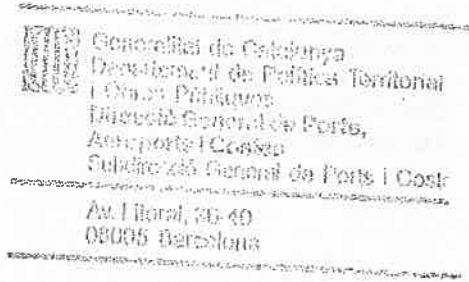 Generalitat de Catalunya
Departament de Política Territorial
i Obres Públiques
Direcció General de Ports,
Aeroports i Costes
Subdirecció General de Ports i Coste
Av. Litoral, 36-40
08005 Barcelona